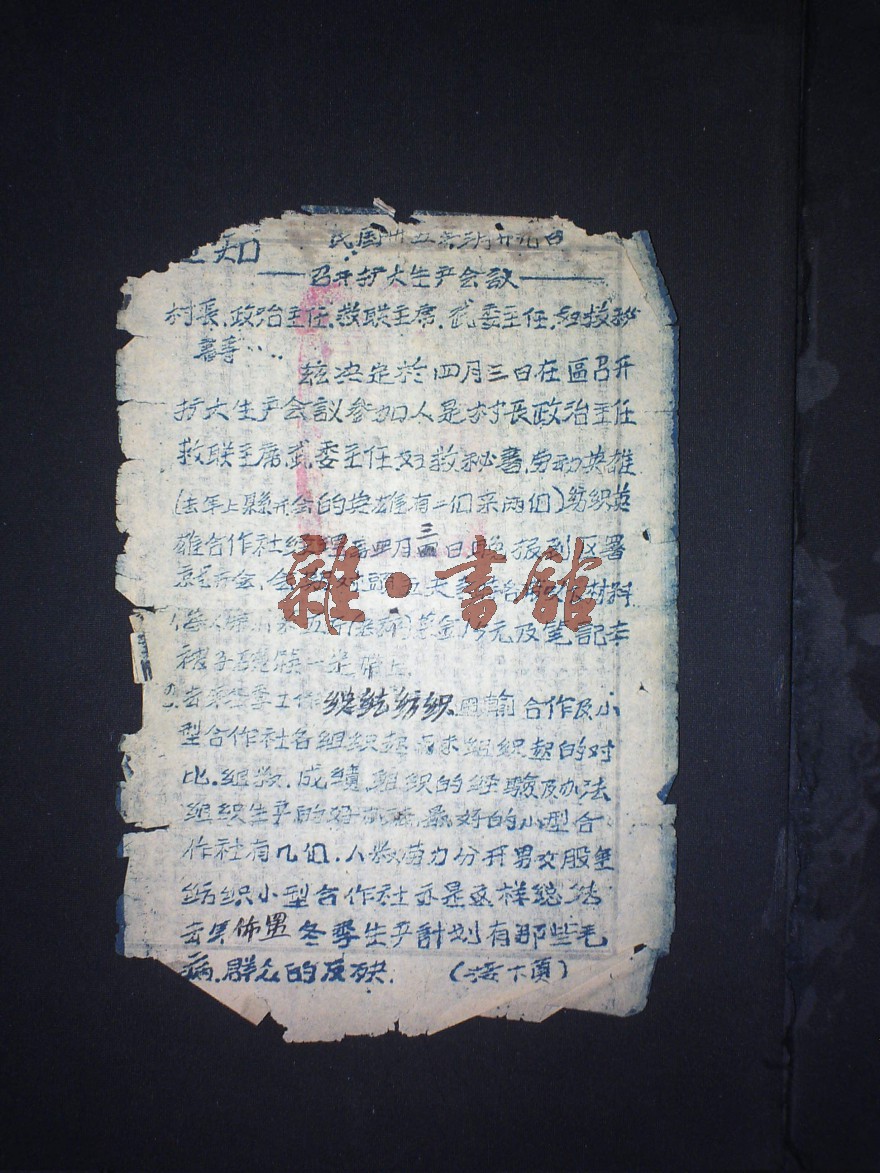 民国卅五年三月廿九日
知
——召开扩大生产会议——
村長.政治主任.救联主席.武委主任.妇救秘
書等....
兹决定於四月三日在區召开
扩大生产会议参加人是村長政治主任
救联主席武委主任妇救秘書.劳动英雄
(去年上縣开会的英雄有二们来两们)纺织英
雄合作社经理 四月三日晚报到区署
开会. 材料
元及笔記本
被子 一定带上
去 季工作總结纺织.運輸合作及小
型合作社各组织起 未组织起的对
比.组数.成績 组织的经驗及办法
组织生产的好 最好的小型合
作社有几们.人数 力分开男女股金
纺织小型合作社亦是这样總结
去年佈置冬季生产計划有那些毛
病.群众的反映. (接下頁)
雜·書館